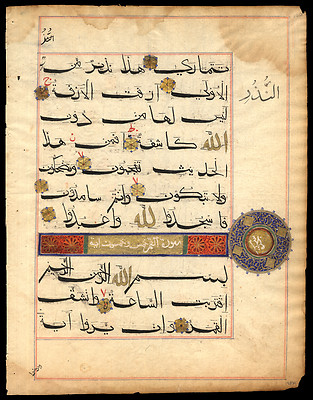 تتمارى هذا نذير من
النذر
الاولى ازفت الازفة
ليس لها من دون
الله كاشفة افمن هذا
الحديث تعجبون وتضحكون
ولا تبكون وانتم سامدون
فاسجدوا لله واعبدوا
سورة القمر وخمسون اية
بسم الله الرحمن الرحيم
اقتربت الساعة وانشق
القمر وان يروا آية